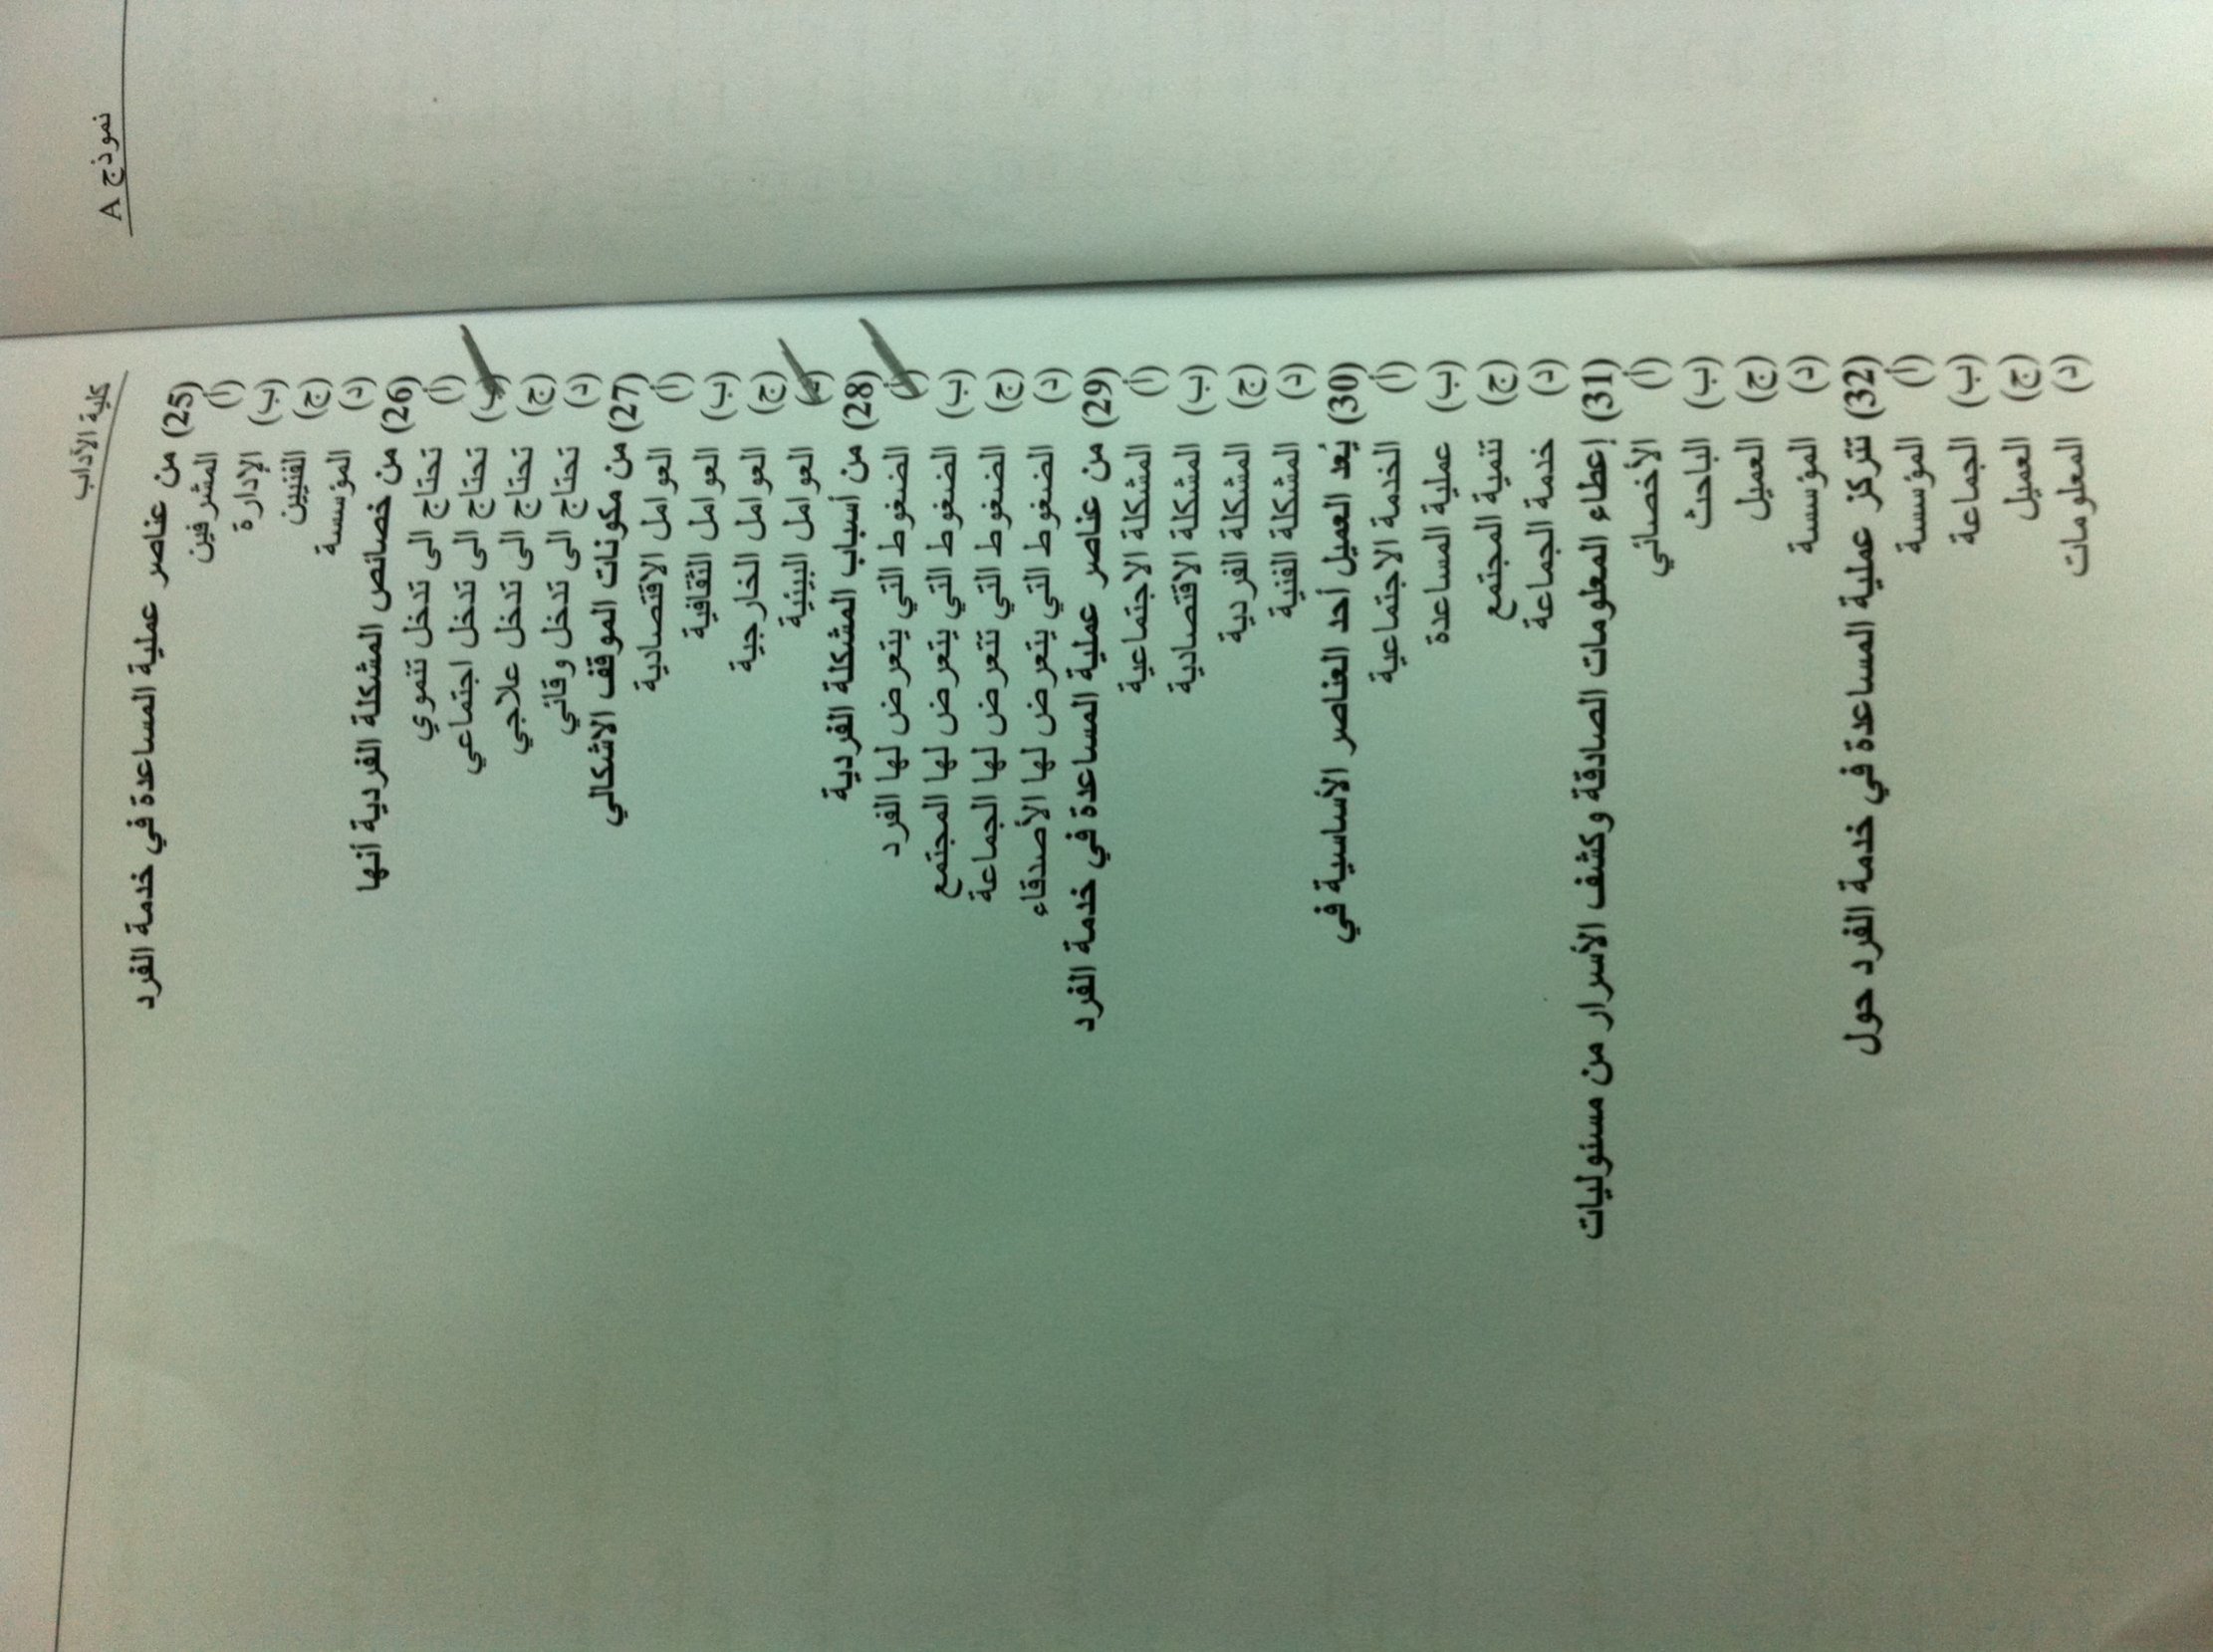 نموذج A
كلية الآداب
(25) من عناصر عملية المساعدة في خدمة الفرد
(أ) المشرفين
(ب) الإدارة
(ج) الفنيين
(د) المؤسسة
(26) من خصائص المشكلة الفردية أنها
(أ) تحتاج الى تدخل تنموي
(ب) تحتاج الى تدخل اجتماعي
(ج) تحتاج الى تدخل علاجي
(د) تحتاج الى تدخل وقائي
(27) من مكونات الموقف الاشكالي
(أ) العوامل الاقتصادية
(ب) العوامل الثقافية
(ج) العوامل الخارجية
(د) العوامل البيئية
(28) من أسباب المشكلة الفردية
(أ) الضغوط التي يتعرض لها الفرد
(ب) الضغوط التي يتعرض لها المجتمع
(ج) الضغوط التي تتعرض لها الجماعة
(د) الضغوط التي يتعرض لها الأصدقاء
(29) من عناصر عملية المساعدة في خدمة الفرد
(أ) المشكلة الاجتماعية
(ب) المشكلة الاقتصادية
(ج) المشكلة الفردية
(د) المشكلة الفنية
(30) يُعد العميل أحد العناصر الأساسية في
(أ) الخدمة الاجتماعية
(ب) عملية المساعدة
(ج) تنمية المجتمع
(د) خدمة الجماعة
(31) إعطاء المعلومات الصادقة وكشف الأسرار من مسئوليات
(أ) الأخصائي
(ب) الباحث
(ج) العميل
(د) المؤسسة
(32) تتركز عملية المساعدة في خدمة الفرد حول
(أ) المؤسسة
(ب) الجماعة
(ج) العميل
(د) المعلومات